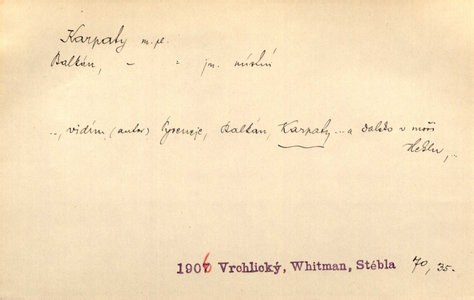 Karpaty m. pl.
Balkán, – " jm. místní
.., vidím (autor) Pyreneje, Balkán, Karpaty ... a daleko v moři
Heklu,..
1906 Vrchlický, Whitman, Stébla 70, 35.